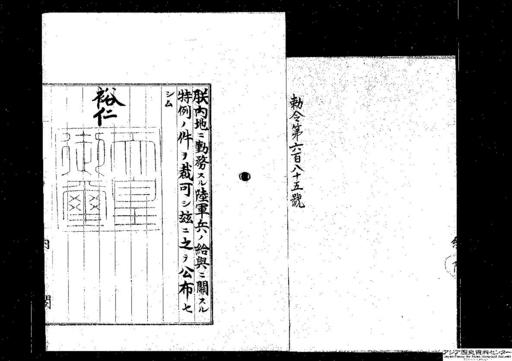 勅令第六百八十五號
朕内地ニ勤務スル陸軍兵ノ給與ニ關スル
特例ノ件ヲ裁可シ玆ニ之ヲ公布セ
シム
裕仁
天皇
御璽
内閣
アジア歴史資料センター